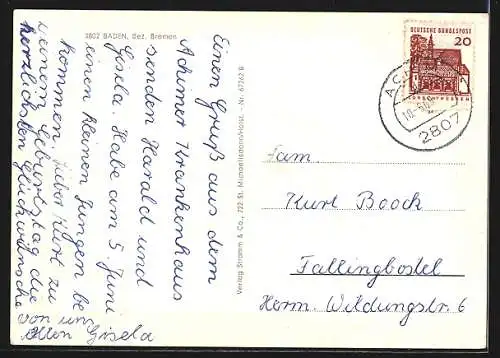 2802 BADEN, Bez. Bremen
Einen Gruß aus dem
Achimer Krankenhaus
senden Harald und
Gisela. Habe am 5. Juni
einen kleinen Jungen be
kommen. Lieber Kurt zu
Deinem Geburtstag die
herzlichsten Glückwünsche
von uns
allen Gisela
Verlag Stramm & Co., 222 St. Michaelisdonn/Holst. - Nr. 67262 B
DEUTSCHE BUNDESPOST
20
LORSCH/HESSEN
2807
Fam.
Kurt Booch
Fallingbostel
Herm. Wildungstr. 6